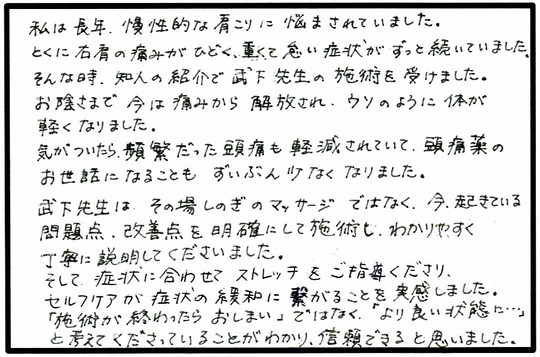 私は長年、慢性的な肩こりに悩まされていました。
とくに右肩の痛みがひどく、重くて怠い症状がずっと続いていました。
そんな時、知人の紹介で武下先生の施術を受けました。
お陰さまで今は痛みから解放され、ウソのように体が
軽くなりました。
気がついたら、頻繁だった頭痛も軽減されていて、頭痛薬の
お世話になることもずいぶん少なくなりました。
武下先生は、その場しのぎのマッサージではなく、今、起きている
問題点、改善点を明確にして施術も、わかりやすく
丁寧に説明してくださいました。
そして、症状に合わせてストレッチをご指導くださり、
セルフケアが症状の緩和に繋がることを実感しました。
「施術が終わったらおしまい」ではなく、「より良い状態に…」
と考えてくださっていることがわかり、信頼できると思いました。